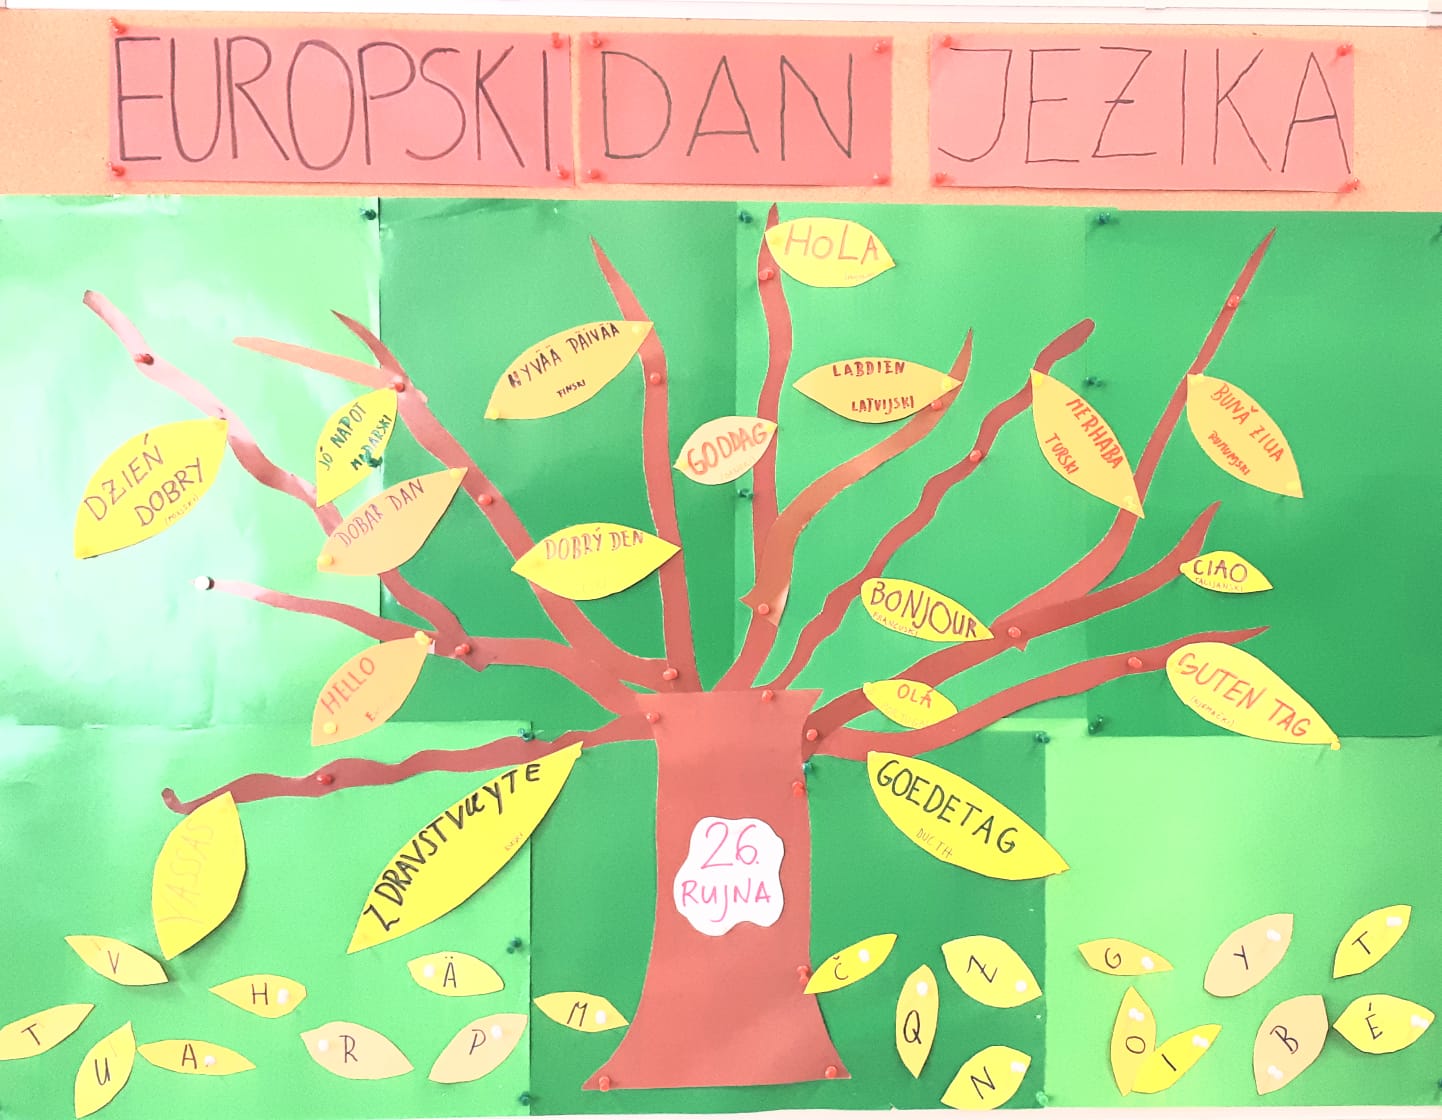 EUROPSKI DAN JEZIKA
HOLA
HYVÄÄ PÄIVÄÄ
FINSKI
LABDIEN
LATVIJSKI
JÓ NAPOT
MAĐARSKI
MERHABA
TURSKI
BUNĂ ZIUA
RUMUNJSKI
DZIEŃ
DOBRY
GODDAG
DOBAR DAN
DOBRÝ DEN
CIAO
TALIJANSKI
BONJOUR
FRANCUSKI
HELLO
OLÁ
GUTEN TAG
(NJEMAČKI)
ZDRAVSTVUYTE
GOEDETAG
DUCTH
YASSAS
26.
RUJNA
V
H
Ä
T
U
A
R
P
M
Č
Q
Z
N
G
Y
T
O
I
B
É